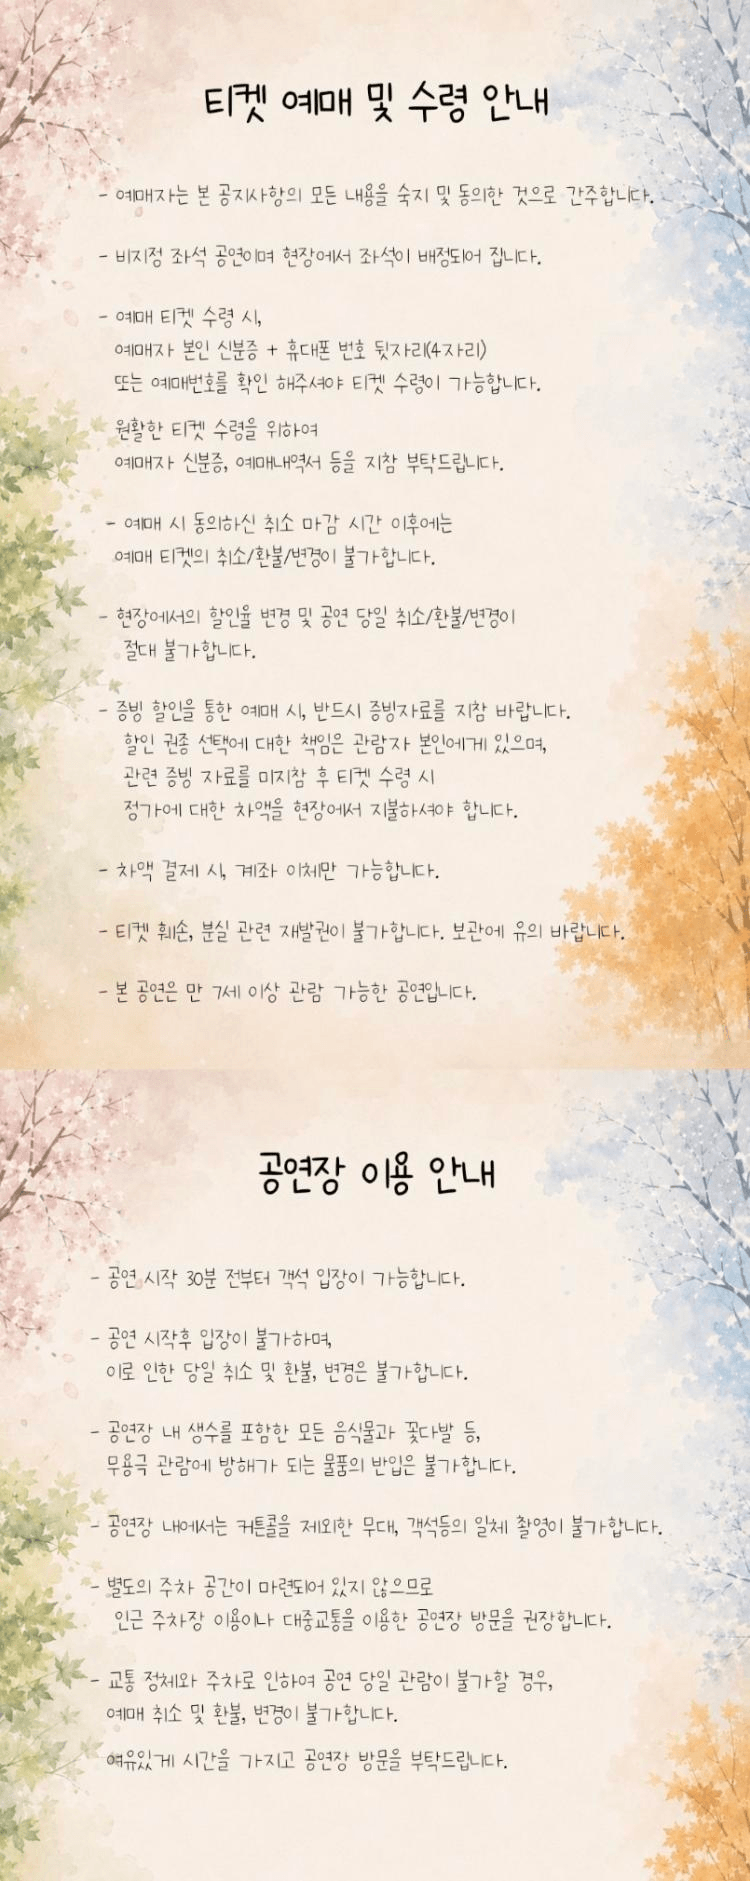 티켓 예매 및 수령 안내
- 예매자는 본 공지사항의 모든 내용을 숙지 및 동의한 것으로 간주합니다.
- 비지정 좌석 공연이며 현장에서 좌석이 배정되어 집니다.
- 예매 티켓 수령 시,
예매자 본인 신분증 + 휴대폰 번호 뒷자리(4자리)
또는 예매번호를 확인 해주셔야 티켓 수령이 가능합니다.
원활한 티켓 수령을 위하여
예매자 신분증, 예매내역서 등을 지참 부탁드립니다.
- 예매 시 동의하신 취소 마감 시간 이후에는
예매 티켓의 취소/환불/변경이 불가합니다.
- 현장에서의 할인율 변경 및 공연 당일 취소/환불/변경이
절대 불가합니다.
- 증빙 할인을 통한 예매 시, 반드시 증빙자료를 지참 바랍니다.
할인 권종 선택에 대한 책임은 관람자 본인에게 있으며,
관련 증빙 자료를 미지참 후 티켓 수령 시
정가에 대한 차액을 현장에서 지불하셔야 합니다.
- 차액 결제 시, 계좌 이체만 가능합니다.
- 티켓 훼손, 분실 관련 재발권이 불가합니다. 보관에 유의 바랍니다.
- 본 공연은 만 7세 이상 관람 가능한 공연입니다.
공연장 이용 안내
- 공연 시작 30분 전부터 객석 입장이 가능합니다.
- 공연 시작후 입장이 불가하며,
이로 인한 당일 취소 및 환불, 변경은 불가합니다.
- 공연장 내 생수를 포함한 모든 음식물과 꽃다발 등,
무용극 관람에 방해가 되는 물품의 반입은 불가합니다.
- 공연장 내에서는 커튼콜을 제외한 무대, 객석등의 일체 촬영이 불가합니다.
- 별도의 주차 공간이 마련되어 있지 않으므로
인근 주차장 이용이나 대중교통을 이용한 공연장 방문을 권장합니다.
- 교통 정체와 주차로 인하여 공연 당일 관람이 불가할 경우,
예매 취소 및 환불, 변경이 불가합니다.
여유있게 시간을 가지고 공연장 방문을 부탁드립니다.